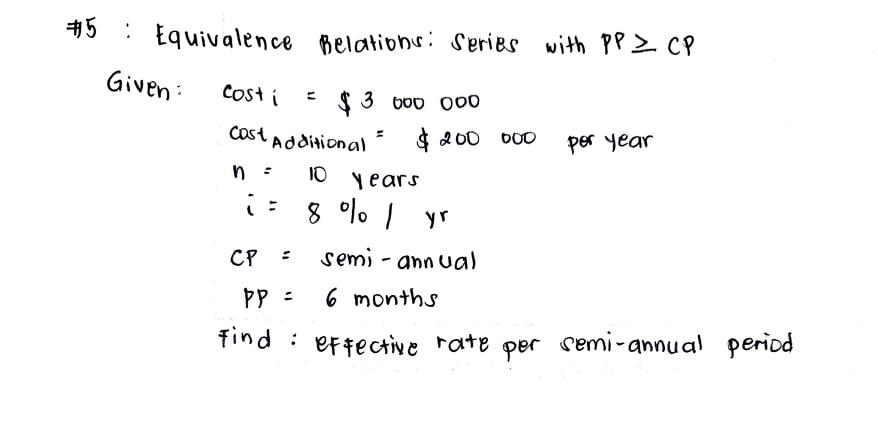 #5 : Equivalence Relations: Series with PP ≥ CP
Given: Cost i = $ 3 000 000
Cost Additional = $ 200 000 per year
n = 10 years
i = 8 % / yr
CP = semi-annual
PP = 6 months
Find : effective rate per semi-annual period